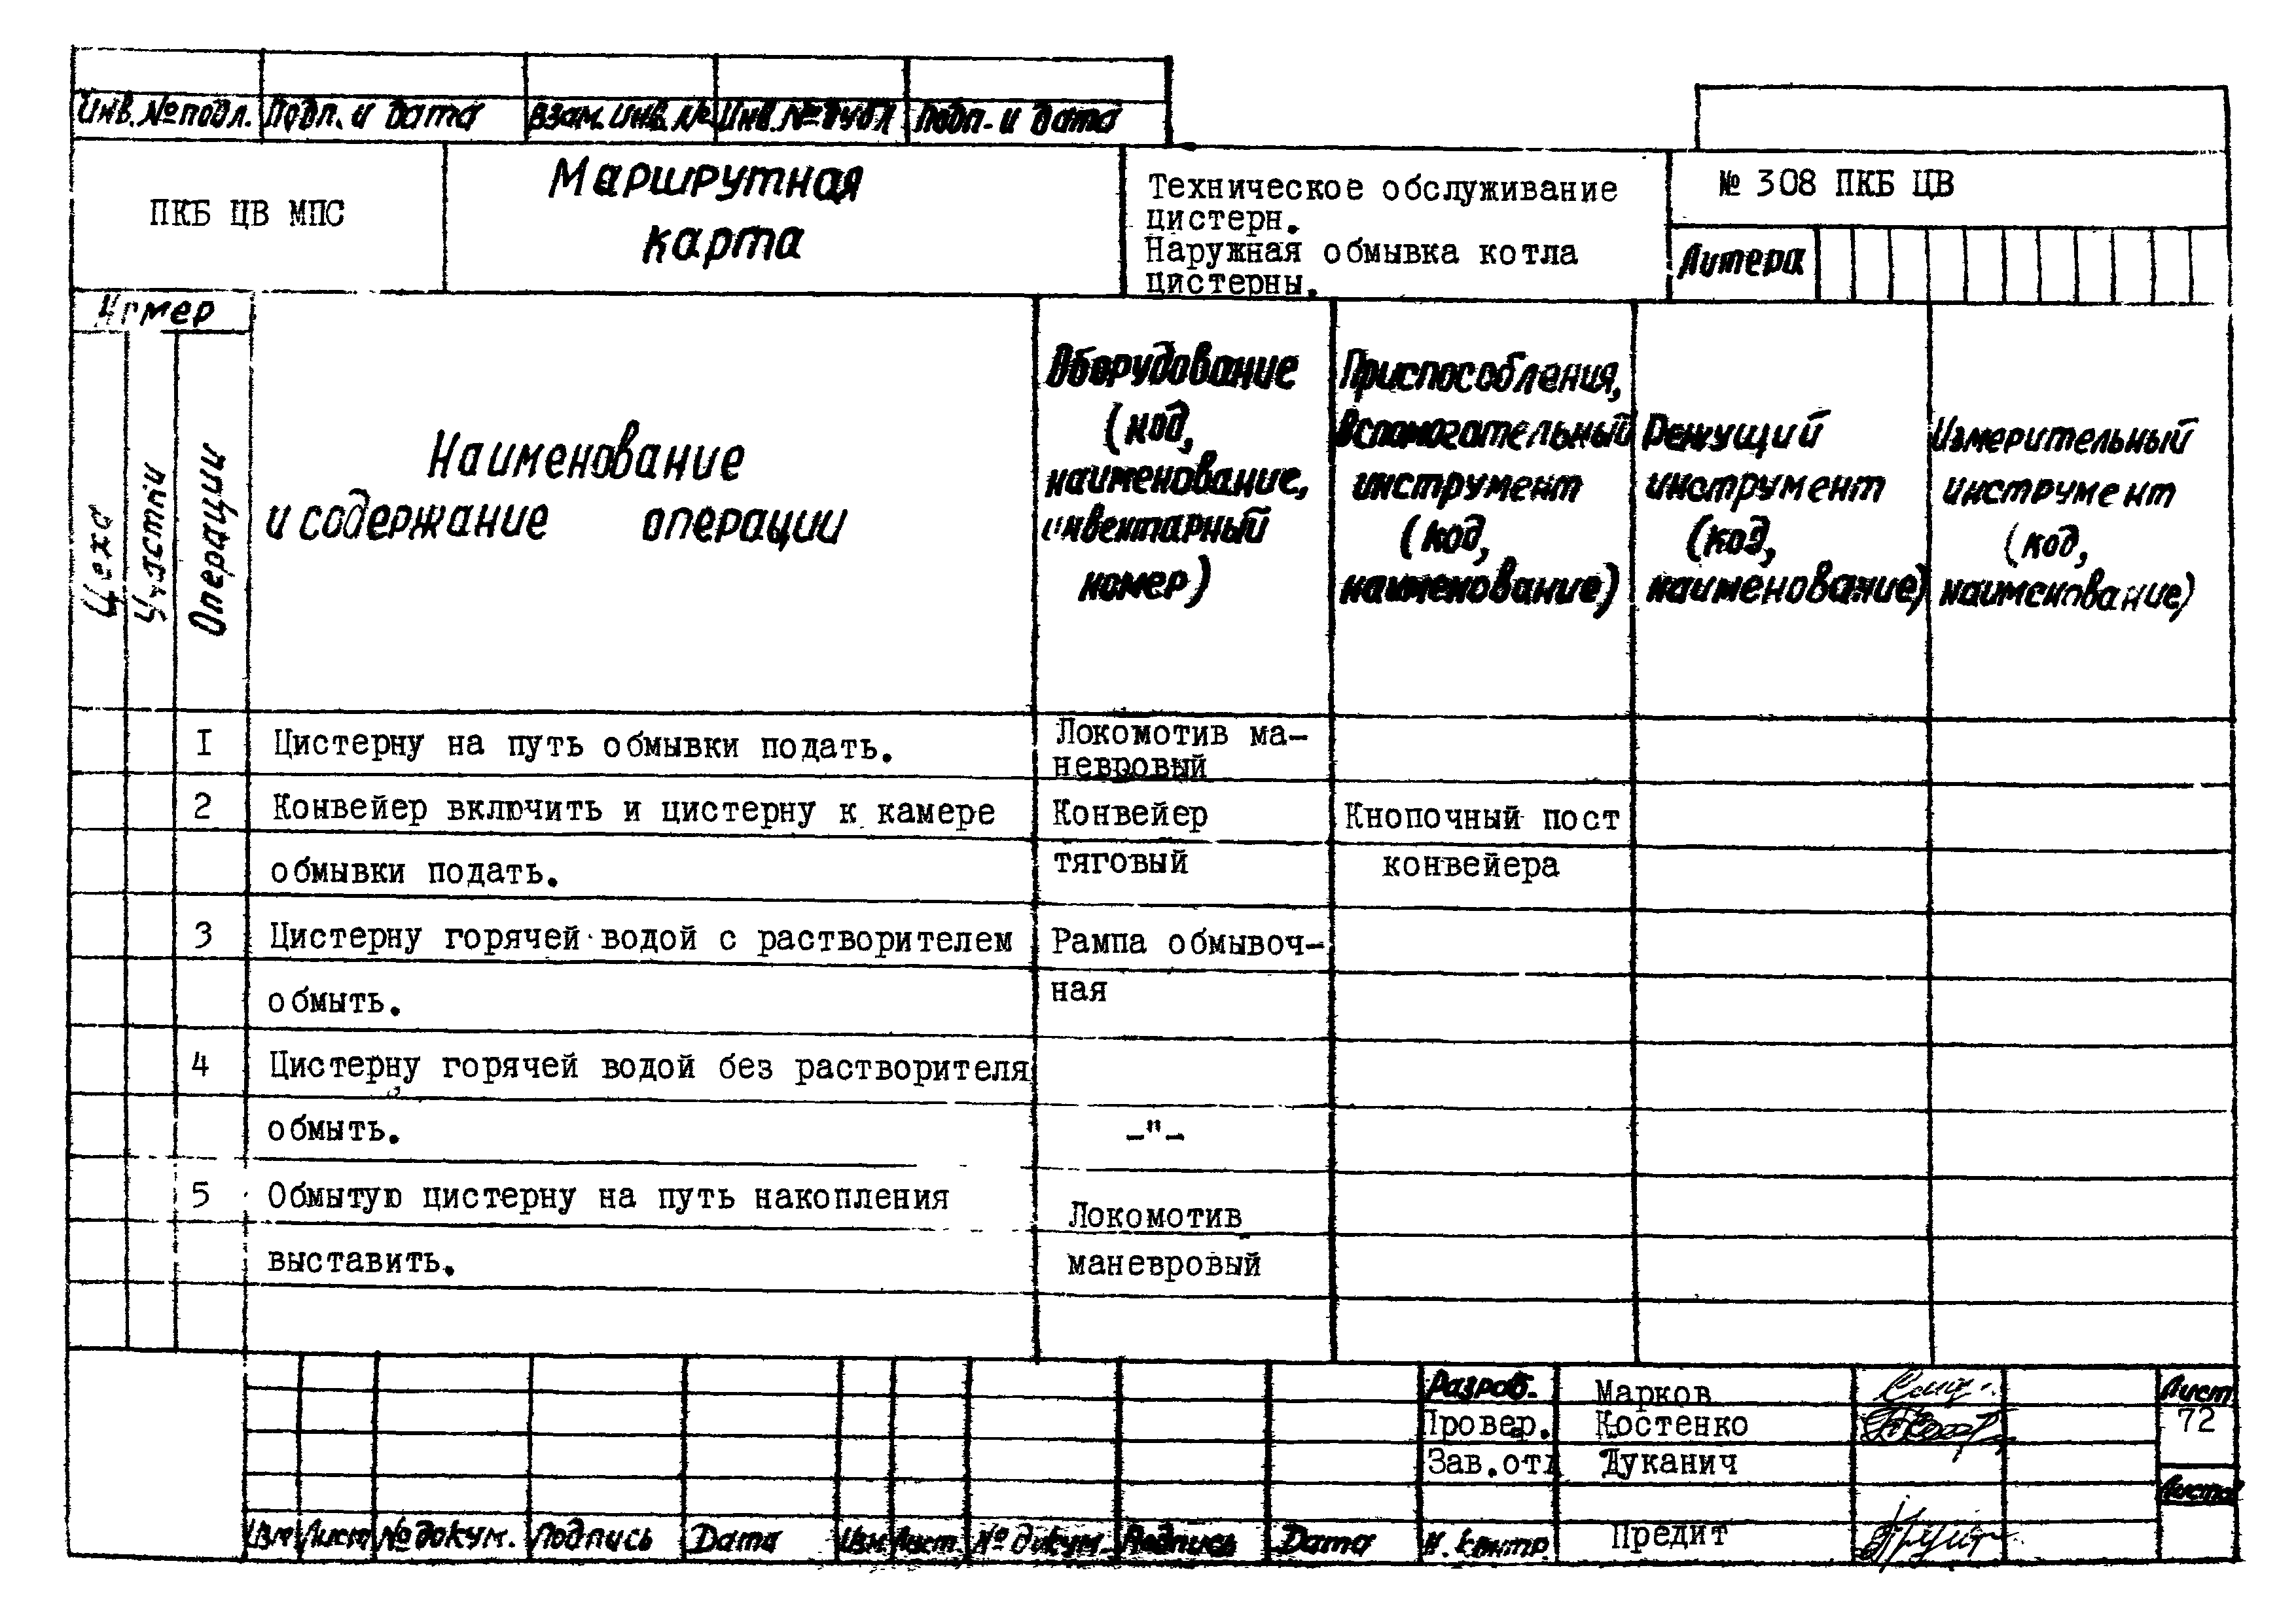 Инв. № подл. Подп. и дата Взам. инв. № Инв. № дубл Подп. и дата
ПКБ ЦВ МПС
Маршрутная
карта
Техническое обслуживание
цистерн.
Наружная обмывка котла
цистерны.
№ 308 ПКБ ЦВ
Литера
Номер
Цеха
Участка
Операции
Наименование
и содержание операции
Оборудование
(код,
наименование,
инвентарный
номер)
Приспособления,
вспомогательный
инструмент
(код,
наименование)
Режущий
инструмент
(код,
наименование)
Измерительный
инструмент
(код,
наименование)
I Цистерну на путь обмывки подать. Локомотив ма-
невровый
2 Конвейер включить и цистерну к камере Конвейер Кнопочный пост
обмывки подать. тяговый конвейера
3 Цистерну горячей водой с растворителем Рампа обмывоч-
обмыть. ная
4 Цистерну горячей водой без растворителя
обмыть. -"-
5 Обмытую цистерну на путь накопления Локомотив
выставить. маневровый
Разраб. Марков Лист
Провер. Костенко 72
Зав.отд Дуканич
Листов
Изм Лист № докум. Подпись Дата Изм Лист. № докум. Подпись Дата Н. контр. Предит